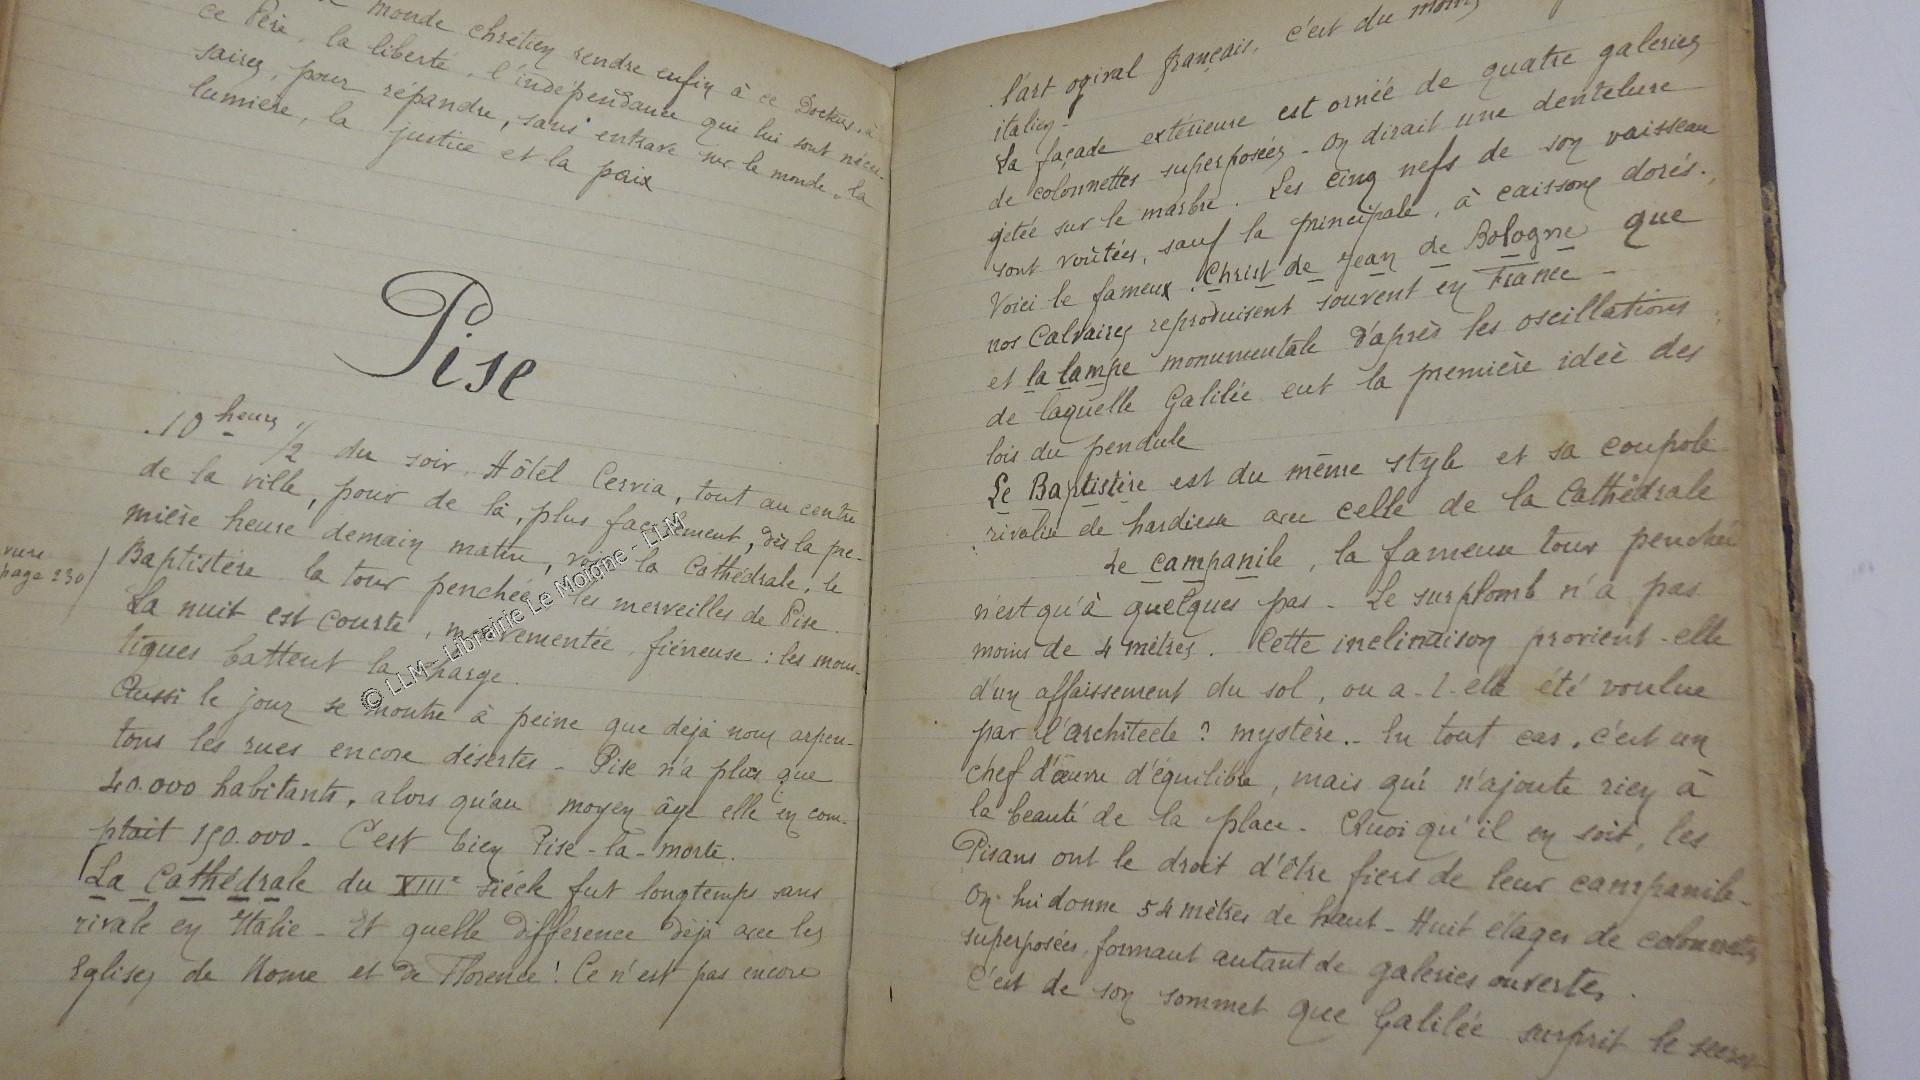 monde chrétien rendre enfin à ce Docteur, à
ce Père, la liberté, l'indépendance qui lui sont néces-
saires, pour répandre, sans entrave sur le monde, la
lumière, la justice et la paix
Pise
10 heures 1/2 du soir. Hôtel Cervia, tout au centre
de la ville, pour de là, plus facilement, dès la pre-
mière heure demain matin, voir la Cathédrale, le
Baptistère la tour penchée les merveilles de Pise.
vues page 230
La nuit est courte, mouvementée, fiévreuse : les mous-
tiques battent la charge.
Aussi le jour se montre à peine que déjà nous arpen-
tons les rues encore désertes - Pise n'a plus que
40.000 habitants, alors qu'au moyen âge elle en com-
ptait 150.000 - C'est bien Pise-la-morte.
La Cathédrale du XIIIe siècle fut longtemps sans
rivale en Italie - Et quelle différence déjà avec les
Eglises de Rome et de Florence ! Ce n'est pas encore
l'art ogival français, c'est du moins
italien -
La façade extérieure est ornée de quatre galeries
de colonnettes superposées - On dirait une dentelure
jetée sur le marbre. Les cinq nefs de son vaisseau
sont voûtées, sauf la principale, à caissons dorés.
Voici le fameux Christ de Jean de Bologne que
nos Calvaires reproduisent souvent en France -
et la lampe monumentale d'après les oscillations
de laquelle Galilée eut la première idée des
lois du pendule
Le Baptistère est du même style et sa coupole
rivalise de hardiesse avec celle de la Cathédrale
Le campanile, la fameuse tour penchée
n'est qu'à quelques pas - Le surplomb n'a pas
moins de 4 mètres. Cette inclinaison provient-elle
d'un affaissement du sol, ou a-t-elle été voulue
par l'architecte ? mystère. - En tout cas, c'est un
chef d'œuvre d'équilibre, mais qui n'ajoute rien à
la beauté de la place - Quoiqu'il en soit, les
Pisans ont le droit d'être fiers de leur campanile -
On lui donne 54 mètres de haut - Huit étages de colonnettes
superposées, formant autant de galeries ouvertes.
C'est de son sommet que Galilée surprit le secret
© LLM - Librairie Le Moigne - LLM